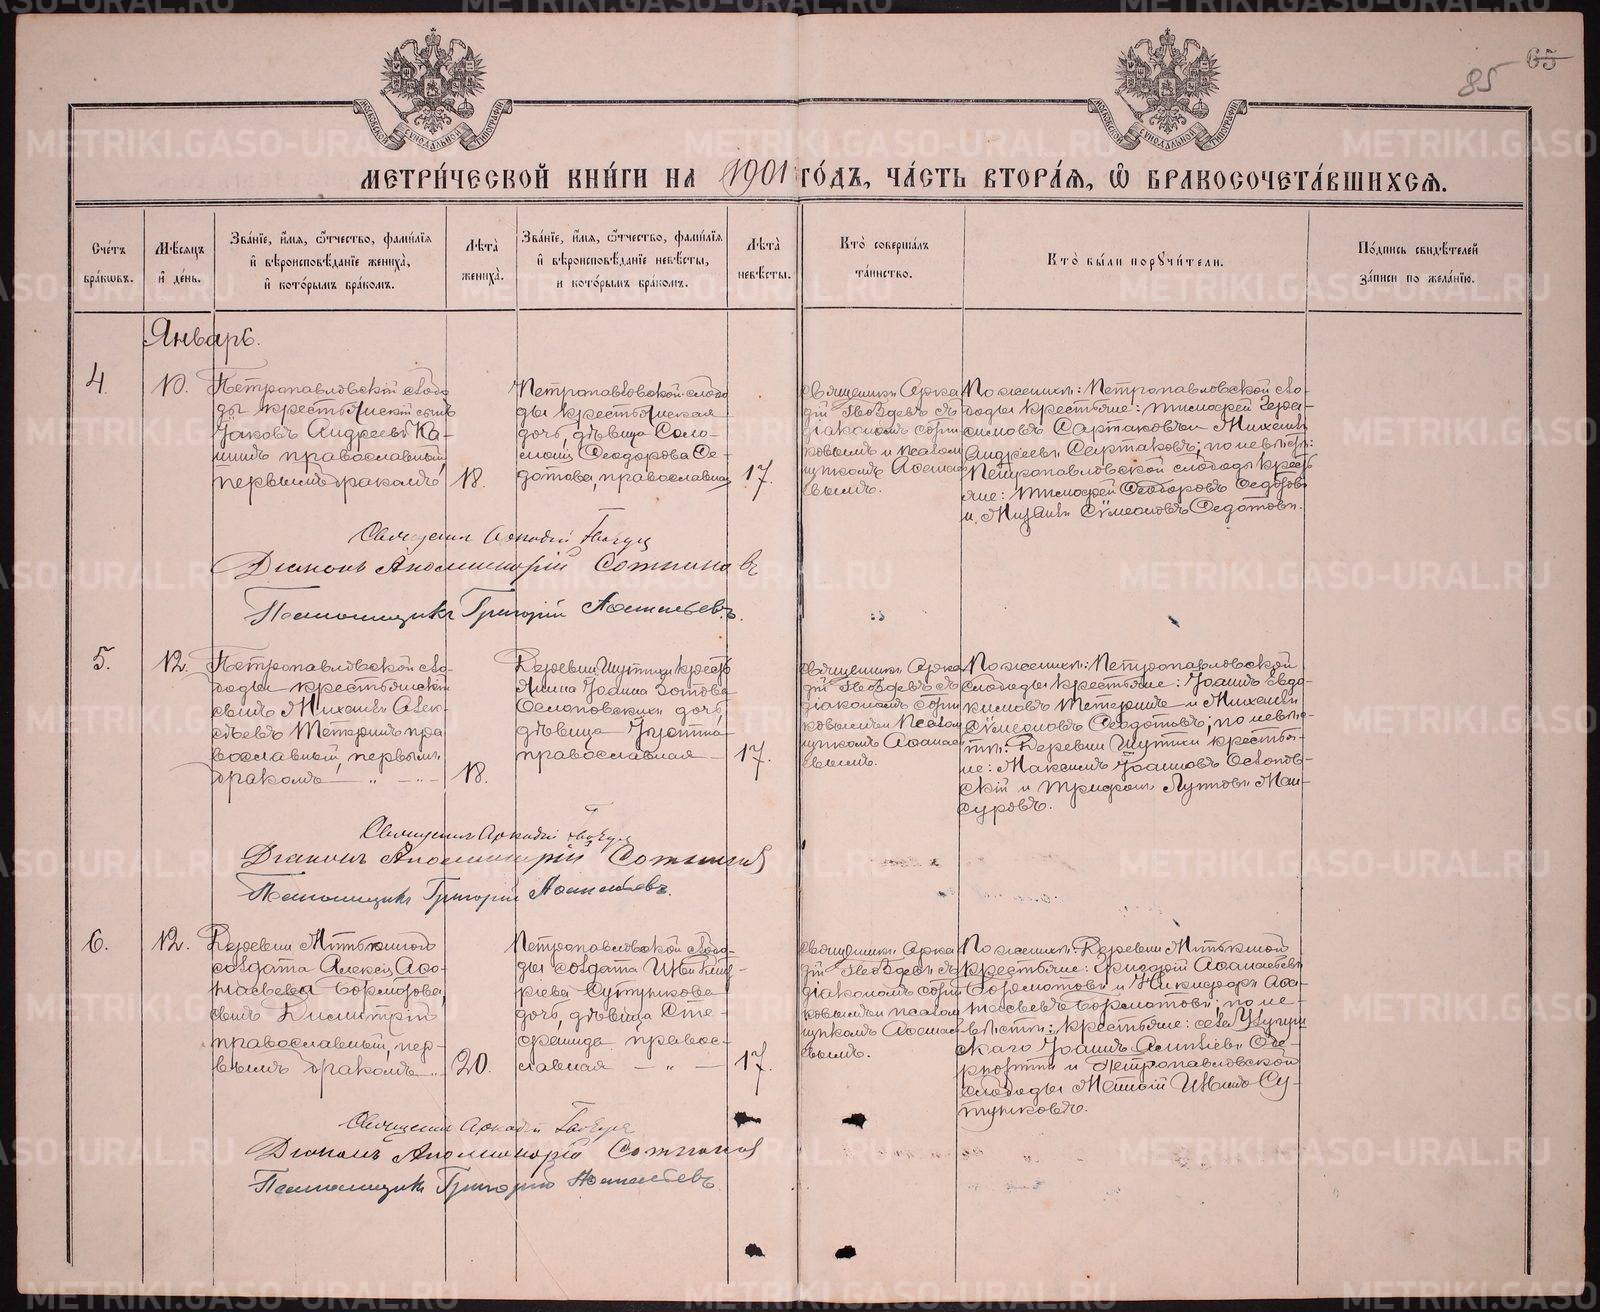 65
85
МЕТРИ́ЧЕСКОЙ КНИ́ГИ НА 1901 ГО́ДЪ, ЧА́СТЬ ВТОРА́Я, Ѡ БРАКОСОЧЕТА́ВШИХСЯ.
Сче́тъ бра́кѡвъ.
Мѣ́сяцъ и҆ де́нь.
Зва́нїе, и҆́мя, ѻ҆́тчество, фами́лїя и҆ вѣроисповѣ́данїе жениха̀, и҆ кото́рымъ бра́комъ.
Лѣта̀ жениха̀.
Зва́нїе, и҆́мя, ѻ҆́тчество, фами́лїя и҆ вѣроисповѣ́данїе невѣ́сты, и кото́рымъ бра́комъ.
Лѣта̀ невѣ́сты.
Кто̀ соверша́лъ та́инство.
Кто̀ бы́ли пору́чители.
По́дпись свидѣ́телей за́писи по жела́нїю.
Январь.
4
10.
Петропавловскій слобо-
ды крестьянскій сынъ
Іаковъ Андреевъ Ка-
шинъ православный,
первымъ бракомъ
18.
Петропавловской слобо-
ды крестьянская
дочь, дѣвица Соло-
монія Ѳеодорова Ѳе-
дотова, православная
17.
Священникъ Арка-
дій Гвоздевъ съ
діакономъ Сотни-
ковымъ и псалом-
щикомъ Аѳанась-
евымъ.
По женихѣ: Петропавловской сло-
боды крестьяне: Тимоѳей Гера-
симовъ Сартаковъ и Михаилъ
Андреевъ Сартаковъ; по невѣстѣ:
Петропавловской слободы кресть-
яне: Тимоѳей Ѳеодоровъ Ѳедотовъ
и Михаилъ Сѵмеоновъ Ѳедотовъ.
Священникъ Аркадій Гвоздевъ
Діаконъ Аполлинарій Сотниковъ
Псаломщикъ Григорій Аѳанасьевъ.
5.
12.
Петропавловской сло-
боды крестьянскій
сынъ Михаилъ Алек-
сѣевъ Тетеринъ пра-
вославный, первымъ
бракомъ — „ —
18.
Деревни Шутихи кресть-
янина Іоанна Зотова
Ослоповскихъ дочь,
дѣвица Іустина
православная —
17.
Священникъ Арка-
дій Гвоздевъ съ
діакономъ Сотни-
ковымъ и псалом-
щикомъ Аѳанась-
евымъ.
По женихѣ: Петропавловской
слободы крестьяне: Іоаннъ Евдо-
кимовъ Тетеринъ и Михаилъ
Сѵмеоновъ Ѳедотовъ; по невѣс-
тѣ: Деревни Шутихи крестья-
не: Максимъ Іоанновъ Ослопов-
скій и Трифонъ Ман-
суровъ.
Священникъ Аркадій Гвоздевъ
Діаконъ Аполлинарій Сотниковъ
Псаломщикъ Григорій Аѳанасьевъ.
6.
12.
Деревни Митькиной
солдата Алексѣя Аѳа-
насьева Бормотова,
сынъ Димитрій
православный, пер-
вымъ бракомъ „
20.
Петропавловской слобо-
ды солдата
Сутункова
дочь, дѣвица Сте-
фанида правос-
лавная — „ —
17.
Священникъ Арка-
дій Гвоздевъ съ
діакономъ Сотни-
ковымъ и псалом-
щикомъ Аѳанась-
евымъ.
По женихѣ: Деревни Митькиной
крестьяне: Григорій Аѳанасьевъ
Бормотовъ и Никифоръ Аѳа-
насьевъ Бормотовъ; по не-
вѣстѣ: крестьяне: села
Іоаннъ
и Петропавловской
слободы Су-
тунковъ.
Священникъ Аркадій Гвоздевъ
Діаконъ Аполлинарій Сотниковъ
Псаломщикъ Григорій Аѳанасьевъ.
METRIKI.GASO-URAL.RU